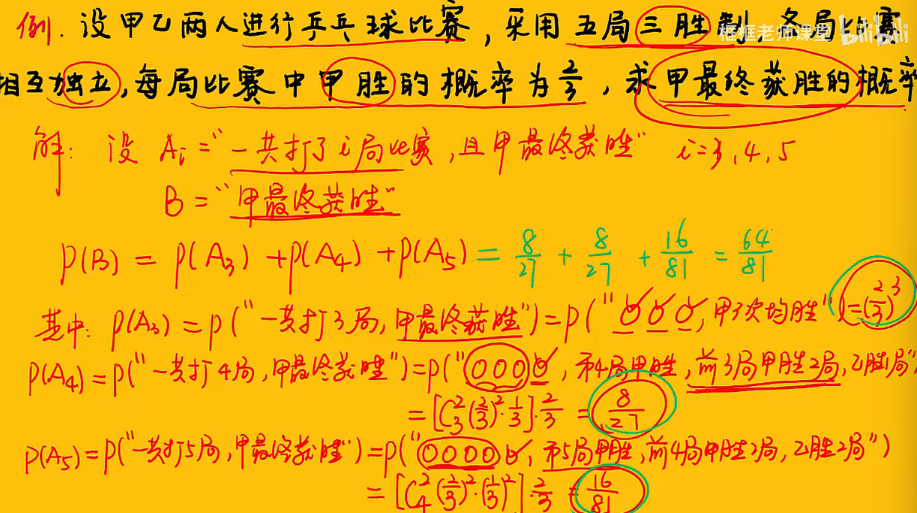 例. 设甲乙两人进行乒乓球比赛,采用五局三胜制,各局比赛
框框老师课堂 bilibili
相互独立,每局比赛中甲胜的概率为2/3,求甲最终获胜的概率
解: 设 Ai="一共打了i局比赛,且甲最终获胜" i=3,4,5
B="甲最终获胜"
P(B) = P(A₃) + P(A₄) + P(A₅) = 8/27 + 8/27 + 16/81 = 64/81
其中: P(A₃) = P("一共打3局,甲最终获胜") = P("000,甲3次均胜") = (2/3)³
P(A₄) = P("一共打4局,甲最终获胜") = P("0000,第4局甲胜,前3局甲胜2局,乙胜1局"
= [C₃²(2/3)²·1/3]·2/3 = 8/27
P(A₅) = P("一共打5局,甲最终获胜") = P("00000,第5局甲胜,前4局甲胜2局,乙胜2局")
= [C₄²(2/3)²·(1/3)²]·2/3 = 16/81